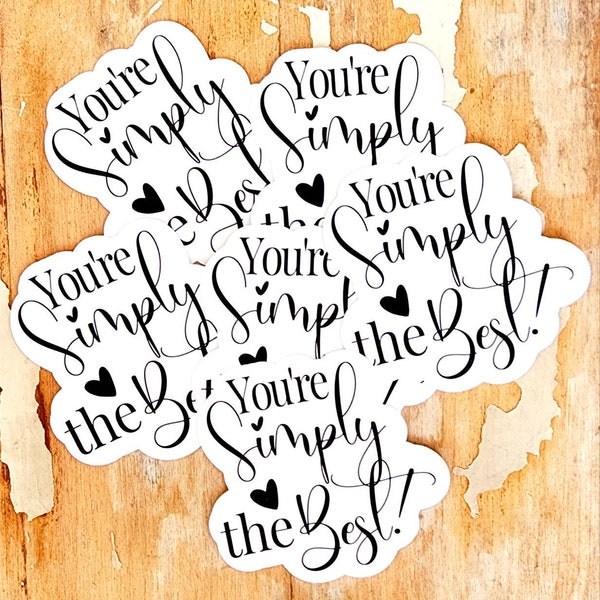 You're
Simply
the Bes
You're
Simply
the
You're
Simply
the Best!
You're
Simply
the Bes
You're
Simpl
You're
Simply
the Best!